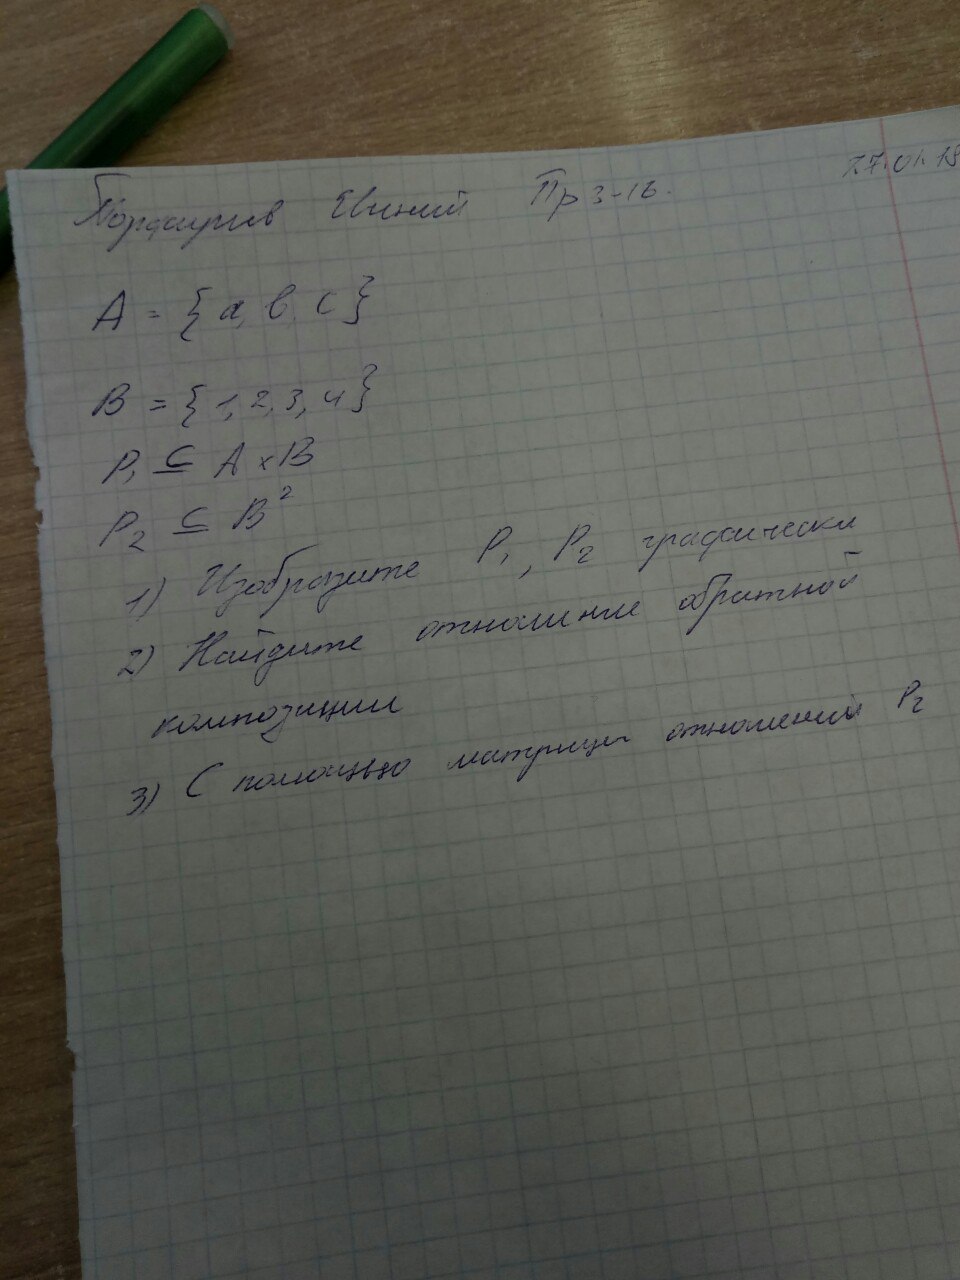 Порфирьев Евгений Пр 3-16. 27.01.18
A = {a, b, c}
B = {1, 2, 3, 4}
P₁ ⊆ A × B
P₂ ⊆ B²
1) Изобразите P₁, P₂ графически
2) Найдите отношение обратной
композиции
3) С помощью матрицы отношений P₂